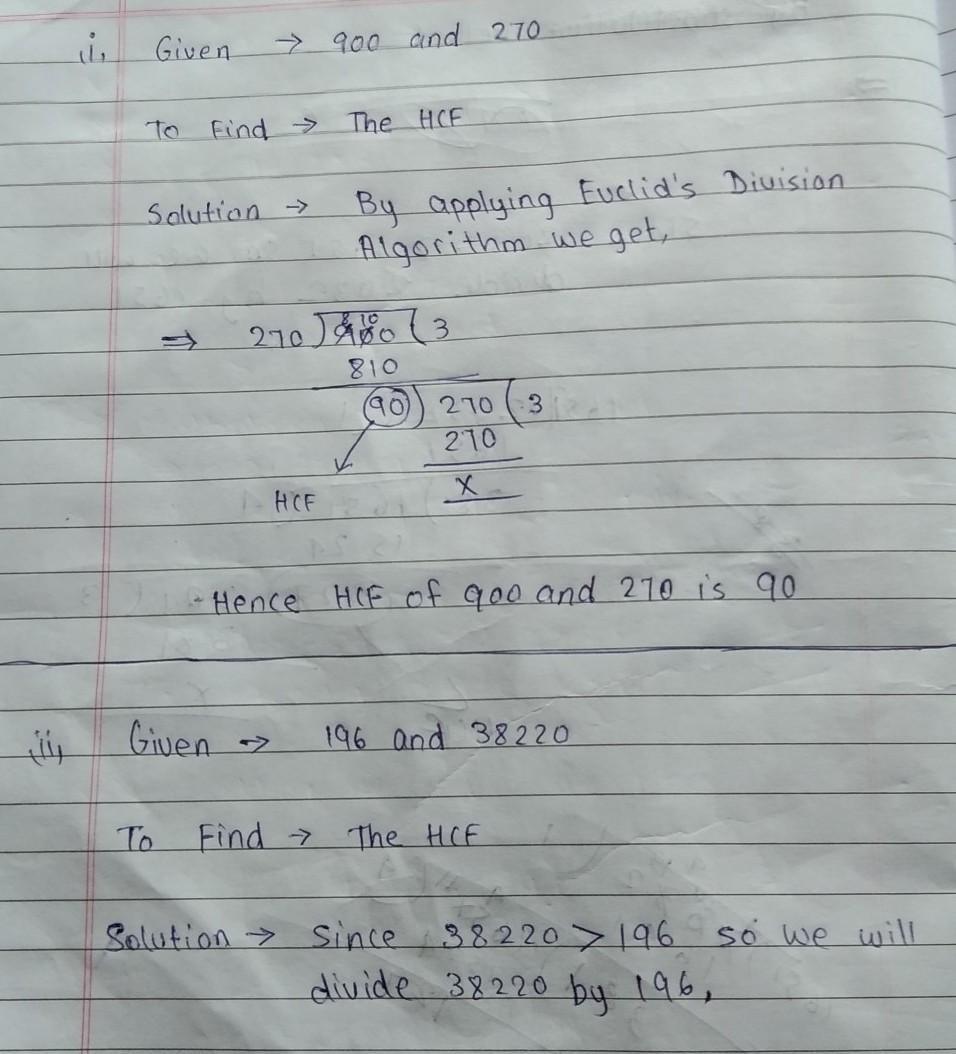 (i), Given → 900 and 270
To Find → The HCF
Solution → By applying Euclid's Division
Algorithm we get,
⇒ 270 ) 900 ( 3
810
90 ) 270 ( 3
270
HCF
x
Hence HCF of 900 and 270 is 90
(ii) Given → 196 and 38220
To Find → The HCF
Solution → Since 38220 > 196 so we will
divide 38220 by 196,